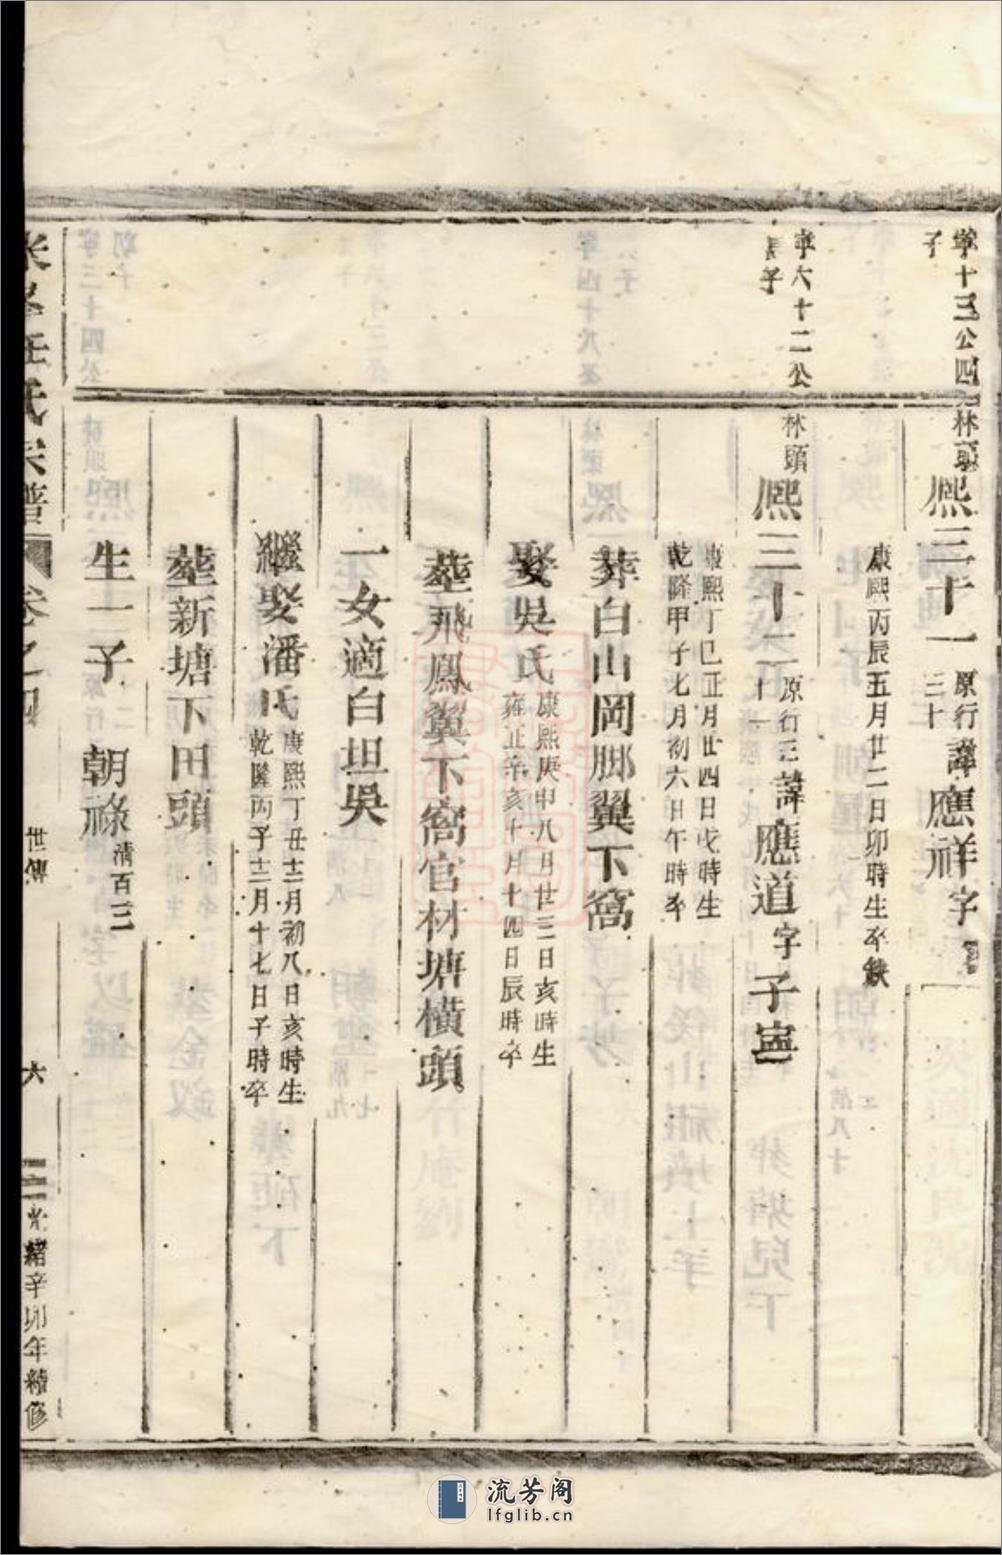 寧十三公四子
林頭
熈三十一 原行三十 諱應祥 字
康熙丙辰五月廿二日卯時生卒缺
寧六十二公長子
林頭
熈三十二 原行三十一 諱應道 字子寧
康熙丁巳正月廿四日戌時生
乾隆甲子七月初六日午時卒
葬白山岡脚翼下窩
娶吳氏 康熙庚申八月廿三日亥時生
雍正辛亥十月十四日辰時卒
塟飛鳳翼下窩官材塘橫頭
一女適白坦吳
繼娶潘氏 康熙丁丑十二月初八日亥時生
乾隆丙子十二月十七日子時卒
塟新塘下田頭
生一子 朝祿 清百三
汪氏宗普 卷之四
世傳
六
光緒辛卯年續修
流芳阁
lfglib.cn